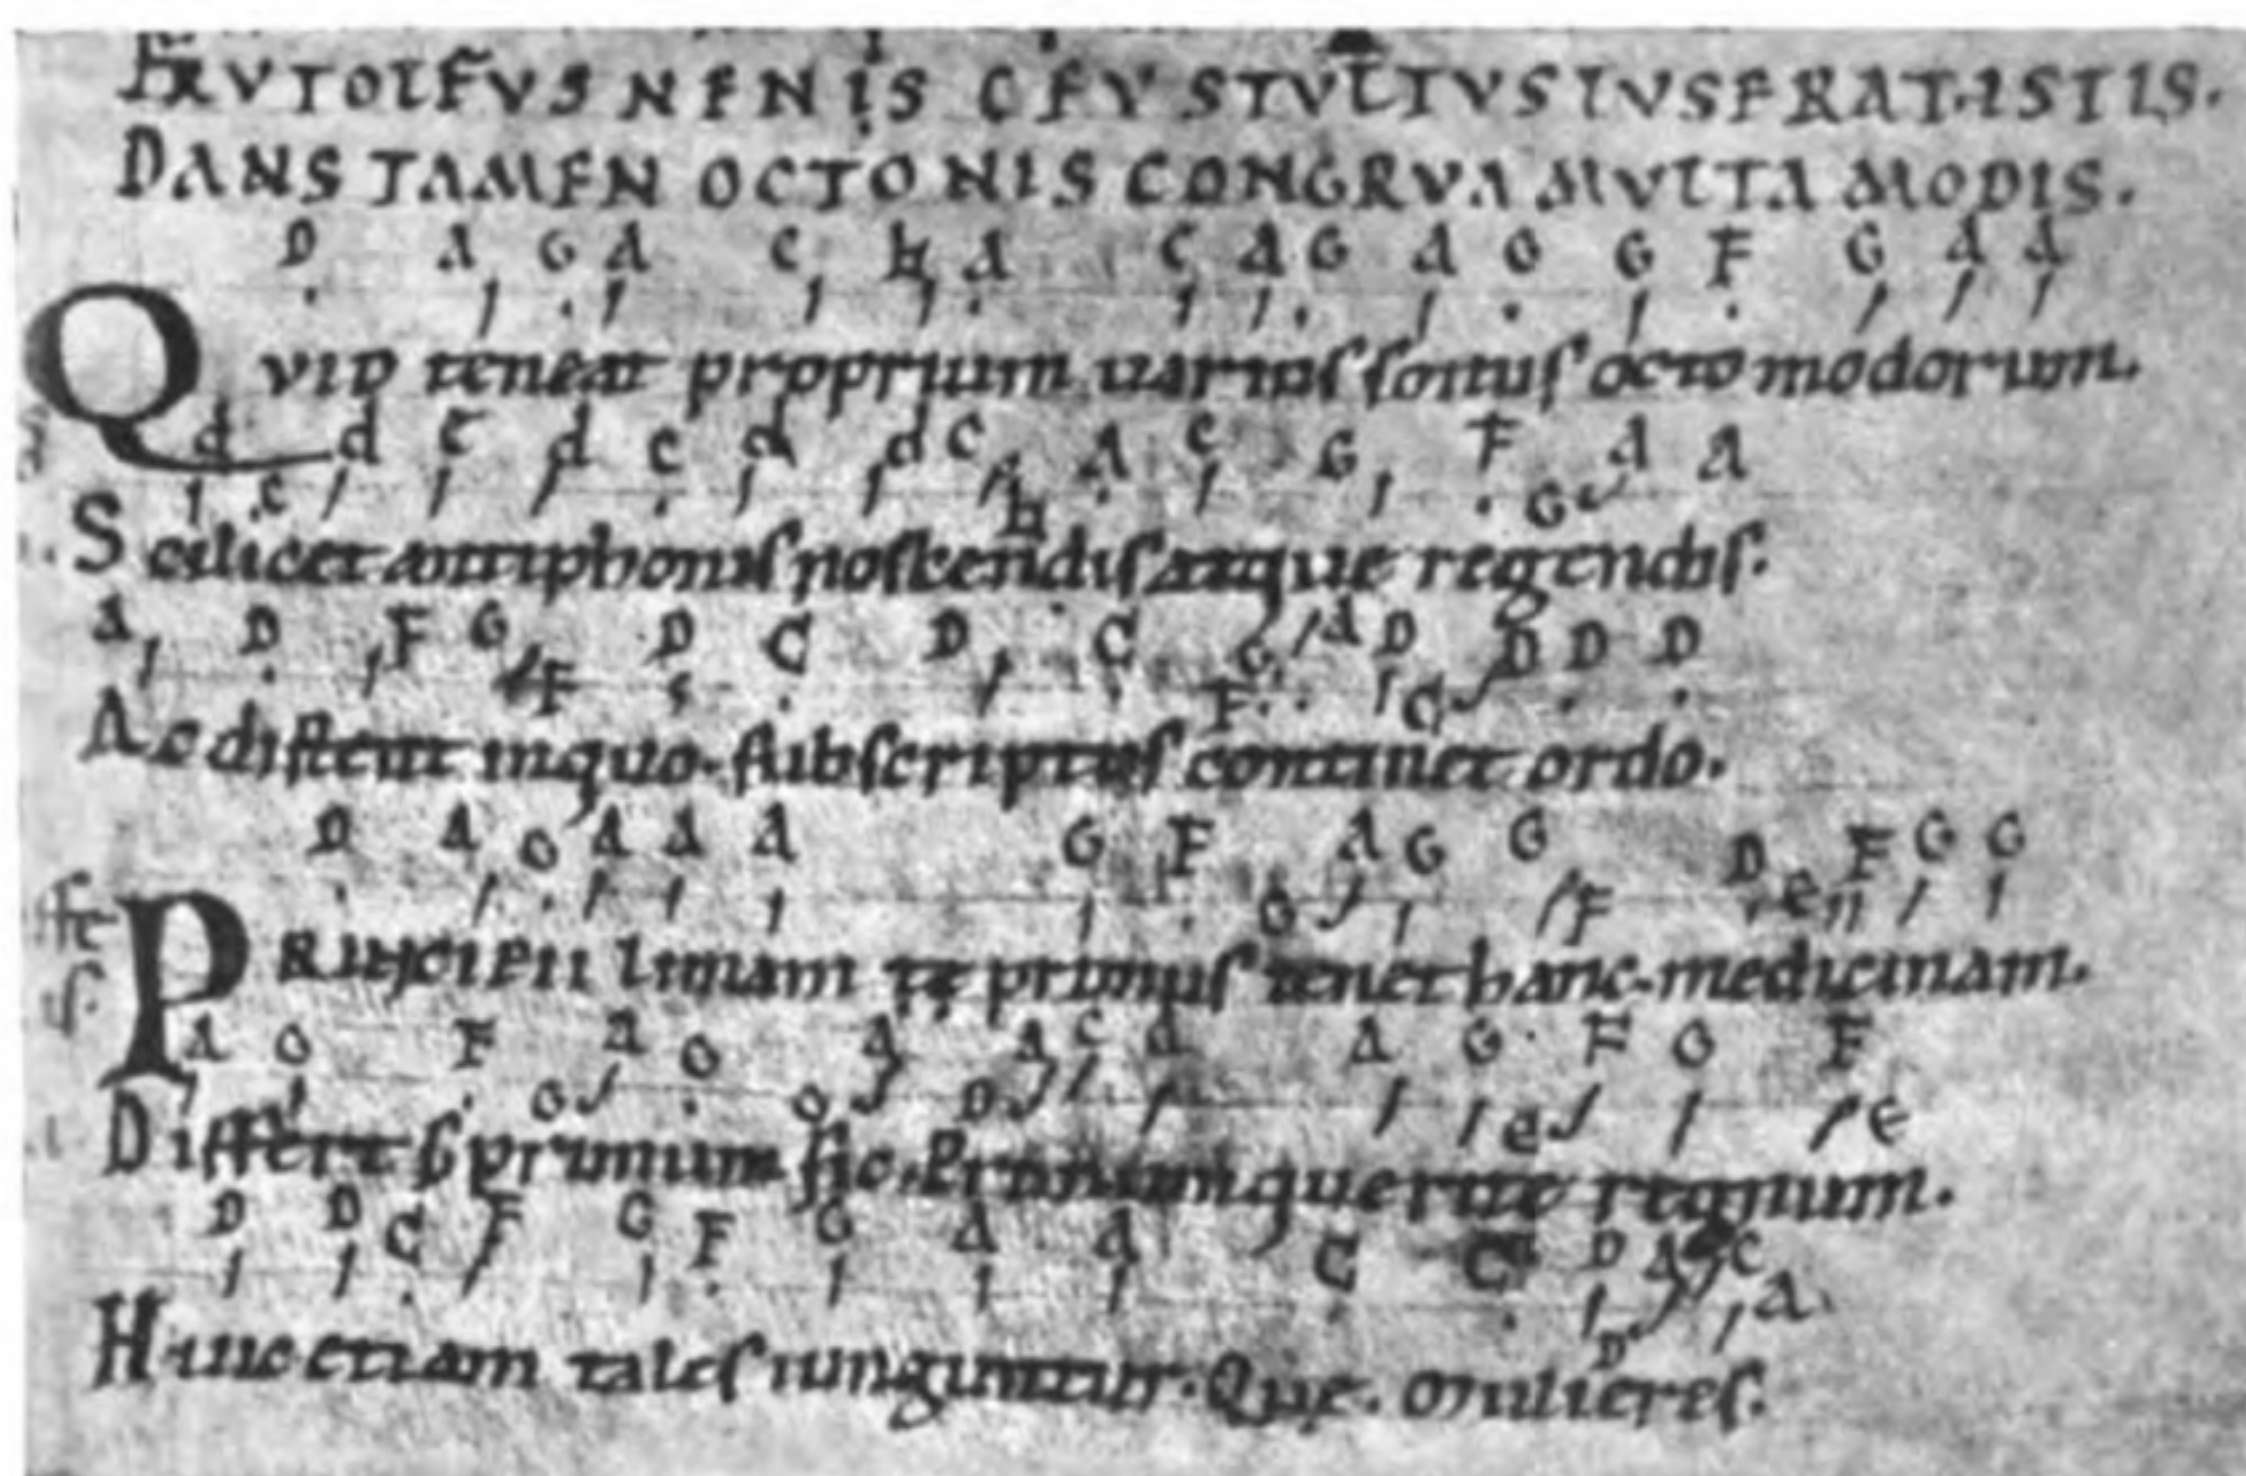 FRVTOLFVS NENIS CEV STVLTVS LVSERAT ISTIS.
DANS TAMEN OCTONIS CONGRVA MVLTA MODIS.
D A G A C h A C A G A G G F G A A
QVID teneat proprium uarius sonus octo modorum.
d c d c d c a d c h A c G F G A A
Scilicet antiphonis noscendis atque regendis.
A D F G F D C D C F G A D C D D D
Ac distent in quo. subscriptus continet ordo.
D A G A A A G F G A G G F D e F G G
PRINCIPII limam te primus tenet hanc. medicinam.
A G F G A G G A D A C A A G e F G F e
Differt s; primum sic. Primum querite regnum.
D D C F G F G A A C C D D A C A
Huic etiam tales iunguntur. Que. mulieres.